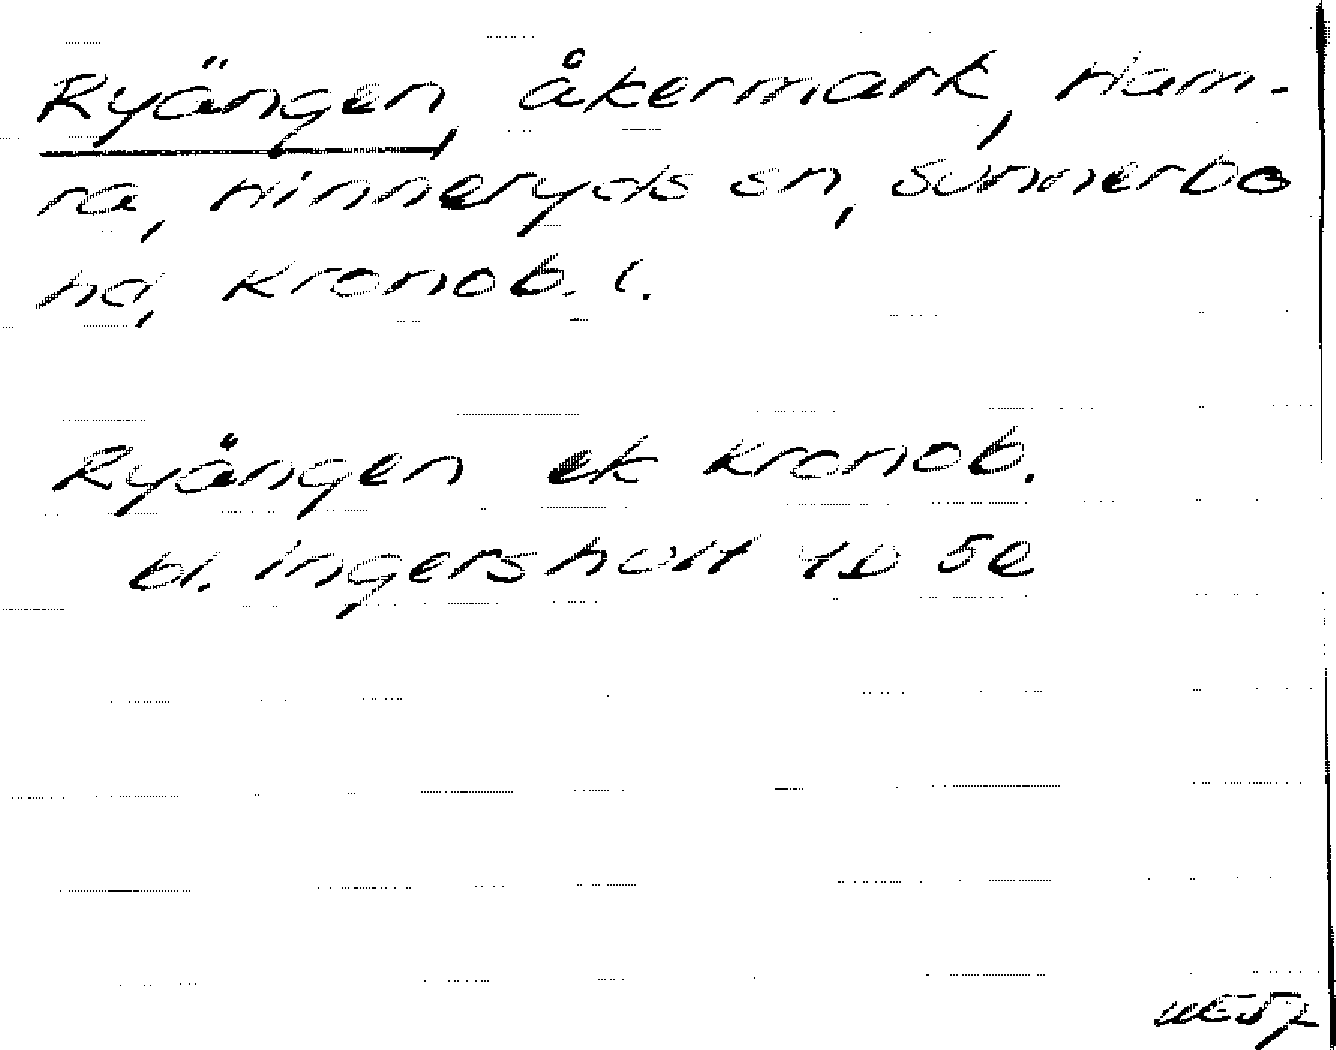 Ryängen, åkermark, Ham-
ra, Hinneryds sn, Sunnerbo
hd, Kronob. l.
Ryängen ek Kronob.
bl. Ingershult 4D 5e